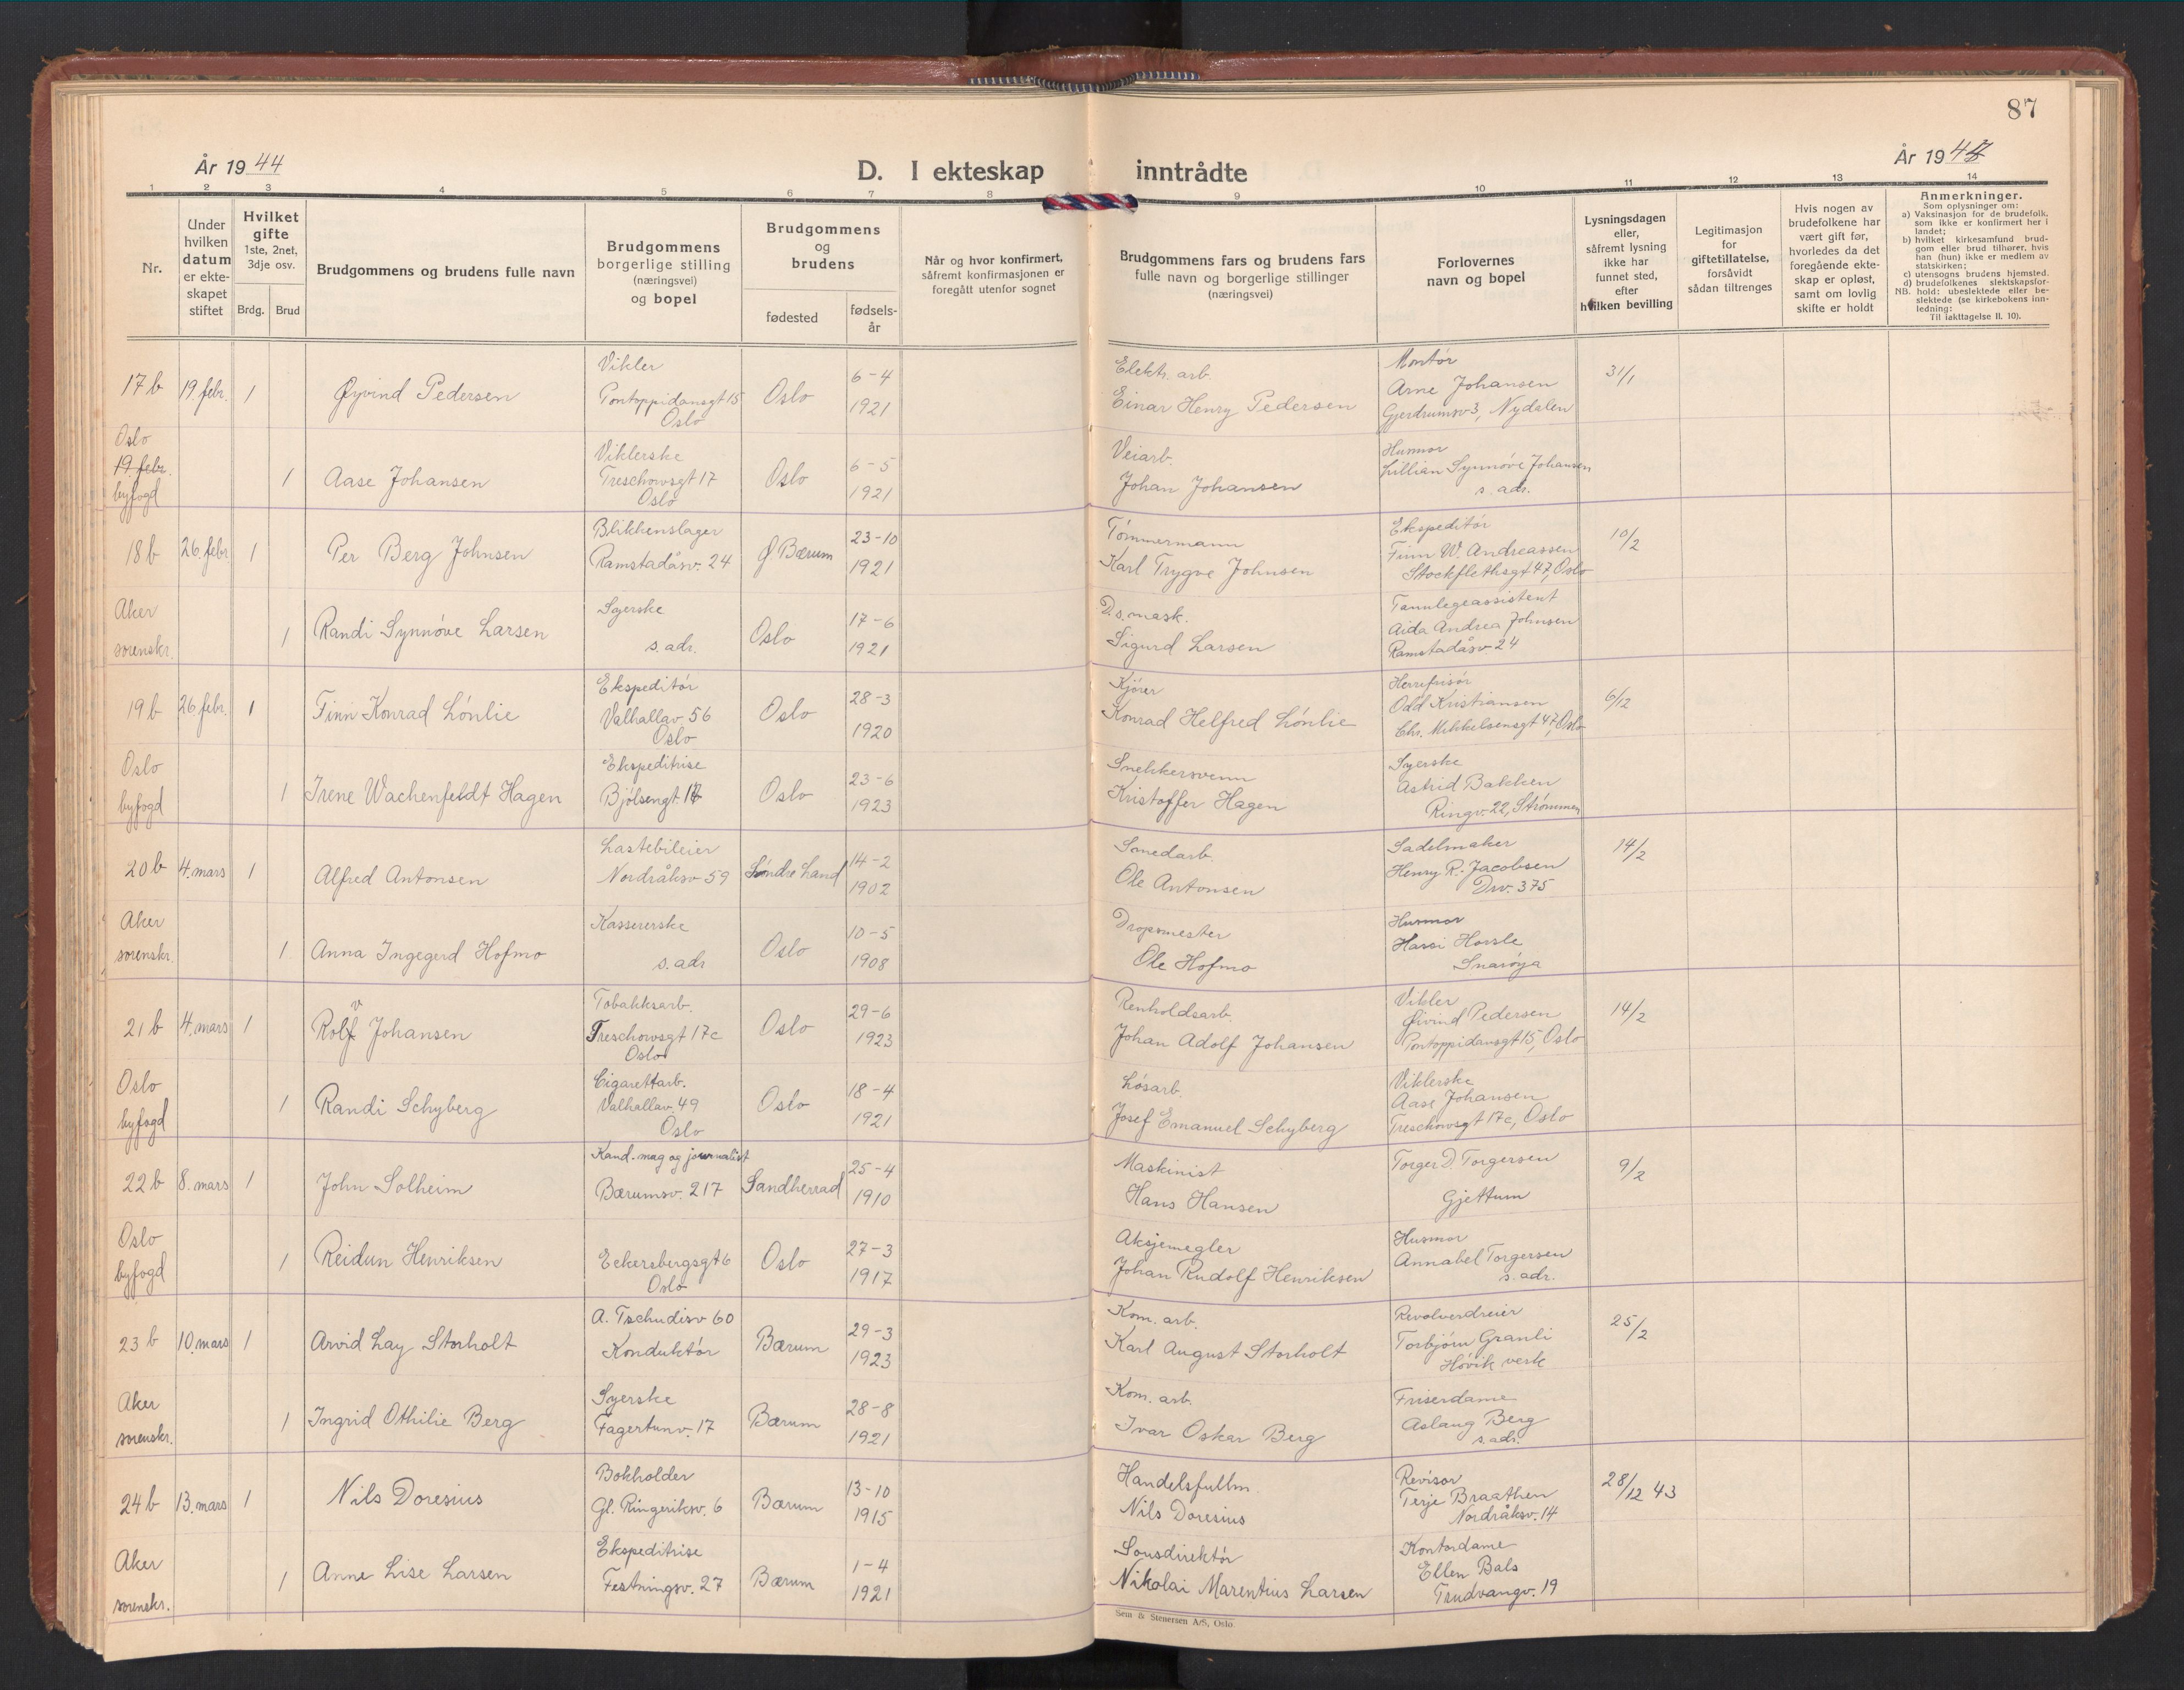 87
År 1944
D. I ekteskap inntrådte
År 1944
1 2 3 4 5 6 7 8 9 10 11 12 13 14
Nr.
Under hvilken datum er ekteskapet stiftet
Hvilket gifte 1ste, 2net, 3dje osv.
Brdg. Brud
Brudgommens og brudens fulle navn
Brudgommens borgerlige stilling (næringsvei) og bopel
Brudgommens og brudens
fødested
fødselsår
Når og hvor konfirmert, såfremt konfirmasjonen er foregått utenfor sognet
Brudgommens fars og brudens fars fulle navn og borgerlige stillinger (næringsvei)
Forlovernes navn og bopel
Lysningsdagen eller, såfremt lysning ikke har funnet sted, efter hvilken bevilling
Legitimasjon for giftetillatelse, forsåvidt sådan tiltrenges
Hvis nogen av brudefolkene har vært gift før, hvorledes da det foregående ekteskap er opløst, samt om lovlig skifte er holdt
Anmerkninger.
Som oplysninger om:
a) Vaksinasjon for de brudefolk, som ikke er konfirmert her i landet;
b) hvilket kirkesamfund brudgom eller brud tilhører, hvis han (hun) ikke er medlem av statskirken;
c) utensogns brudens hjemsted.
d) brudefolkenes slektskapsforhold: ubeslektede eller beslektede (se kirkebokens innledning:
NB.
Til iakttagelse II. 10).
17 b 19. febr. 1 Øyvind Pedersen Vikler Pontoppidansgt 15 Oslo Oslo 6-4 1921 Elektr. arb. Einar Henry Pedersen Montør Arne Johansen Gjerdrumsv 3, Nydalen 31/1
Oslo 19. febr. byfogd 1 Aase Johansen Viklerske Treschowsgt 17 Oslo Oslo 6-5 1921 Veiarb. Johan Johansen Husmor Lillian Synnøve Johansen s. adr.
18 b 26. febr 1 Per Berg Johnsen Blikkenslager Ramstadåsv. 24 Ø. Bærum 23-10 1921 Tømmermann Karl Trygve Johnsen Ekspeditør Finn W. Andreassen Stockflethsgt 47, Oslo 10/2
Aker sorenskr. 1 Randi Synnøve Larsen Syerske s. adr. Oslo 17-6 1921 D.s. mask. Sigurd Larsen Tannlegeassistent Aida Andrea Johnsen Ramstadåsv 24
19 b 26. febr. 1 Finn Konrad Lønlie Ekspeditør Valhallav 56 Oslo Oslo 28-3 1920 Kjører Konrad Helfred Lønlie Herrefrisør Odd Kristiansen Chr. Mikkelsensgt 47, Oslo 6/12
Oslo byfogd 1 Irene Wachenfeldt Hagen Ekspeditrise Bjølsengt Oslo 23-6 1923 Snekkersvenn Kristoffer Hagen Syerske Astrid Bakken Ringv. 22, Strømmen
20 b 4. mars 1 Alfred Antonsen Lastebileier Nordråksv 59 Søndre Land 14-2 1902 Smedarb. Ole Antonsen Sadelmaker Henry R. Jacobsen Drv. 375 14/2
Aker sorenskr. 1 Anna Ingegerd Hofmo Kassererske s. adr Oslo 10-5 1908 Dropsmester Ole Hofmo Husmor Horsle Snarøya
21 b 4. mars 1 Rolv Johansen Tobakksarb. Treschowsgt 17c Oslo Oslo 29-6 1923 Renholdsarb. Johan Adolf Johansen Vikler Øivind Pedersen Pontoppidansgt 15, Oslo 14/2
Oslo byfogd 1 Randi Schyberg Cigarettarb. Valhallav. 49 Oslo Oslo 18-4 1921 Løsarb. Josef Emanuel Schyberg Viklerske Aase Johansen Treschowsgt 17c, Oslo
22 b 8. mars 1 John Solheim Kand. mag og journalist Bærumsv. 217 Sandherrad 25-4 1910 Maskinist Hans Hansen Torger D. Torgersen Gjettum 9/2
Oslo byfogd 1 Reidun Henriksen Eckersbergsgt 6 Oslo Oslo 27-3 1917 Aksjemegler Johan Rudolf Henriksen Husmor Annabel Torgersen s. adr.
23 b 10. mars 1 Arvid Lay Storholt A. Tschudisv 60 Konduktør Bærum 29-3 1923 Kom. arb. Karl August Storholt Revolverdreier Torbjørn Granli Høvik verk 25/2
Aker sorenskr. 1 Ingrid Othilie Berg Syerske Fagertunv. 17 Bærum 28-8 1921 Kom. arb. Ivar Oskar Berg Friserdame Aslaug Berg s. adr.
24 b 13. mars 1 Nils Doresius Bokholder Gl. Ringeriksv. 6 Bærum 13-10 1915 Handelsfullm. Nils Doresius Revisor Terje Braathen Nordråksv. 14 28/12 43
Aker sorenskr. 1 Anne Lise Larsen Ekspeditrise Festningsv. 27 Bærum 1-4 1921 Sousdirektør Nikolai Marentius Larsen Kontordame Ellen Bals Trudvangv. 19
Sem & Stenersen A/S, Oslo